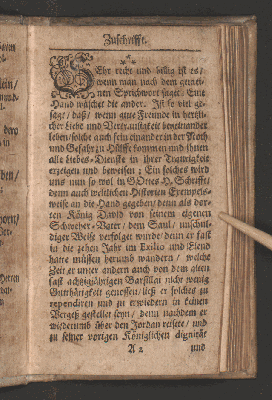 Zuschrifft.
SEhr recht und billig ist es/
wenn man nach dem gemei-
nen Sprichwort saget: Eine
Hand wäschet die ander. Ist so viel ge-
sagt/ daß/ wenn gute Freunde in hertzli-
cher Liebe und Vertrauligkeit beyeinander
leben/ solche auch sein einander in der Noth
und Gefahr zu Hülffe kommen und ihnen
alle Liebes-Dienste in ihrer Traurigkeit
erzeigen und beweisen; Ein solches wird
uns nun so wol in GOttes H. Schrifft/
denn auch weltlichen Historien Exempels-
weise an die Hand gegeben/ denn als dor-
ten König David von seinem eigenen
Schweher-Vater/ dem Saul/ unschul-
diger Weise verfolget wurde/ denn er fast
in die zehen Jahr im Exilio und Elend
hatte müssen herumb wandern/ welche
Zeit er unter andern auch von dem guten
fast achtzigjährigen Barsillai nicht wenig
Gutthätigkeit genossen/ ließ er solches zu
rependiren und zu erwiedern in keinen
Vergeß gestellet seyn/ denn nachdem er
wiederumb über den Jordan reisete/ und
zu seiner vorigen Königlichen dignität
A 2 und